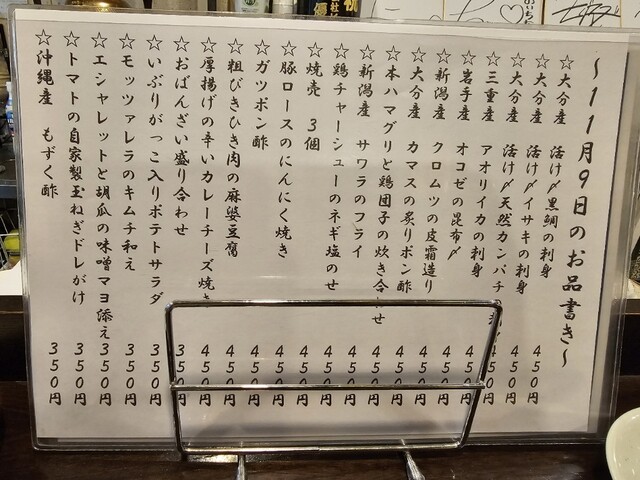 ~11月9日のお品書き~
☆大分産 活け〆黒鯛の刺身 450円
☆大分産 活け〆イサキの刺身 450円
☆大分産 活け〆天然カンパチ
☆三重産 アオリイカの刺身 450円
☆岩手産 オコゼの昆布〆 450円
☆新潟産 クロムツの皮霜造り 450円
☆大分産 カマスの炙りポン酢 450円
☆本ハマグリと鶏団子の炊き合わせ 450円
☆新潟産 サワラのフライ 450円
☆鶏チャーシューのネギ塩のせ 450円
☆焼売 3個 450円
☆豚ロースのにんにく焼き 450円
☆ガツポン酢 450円
☆粗びきひき肉の麻婆豆腐 450円
☆厚揚げの辛いカレーチーズ焼き 450円
☆おばんざい盛り合わせ 350円
☆いぶりがっこ入りポテトサラダ 350円
☆モッツァレラのキムチ和え 350円
☆エシャレットと胡瓜の味噌マヨ添え 350円
☆トマトの自家製玉ねぎドレがけ 350円
☆沖縄産 もずく酢 350円